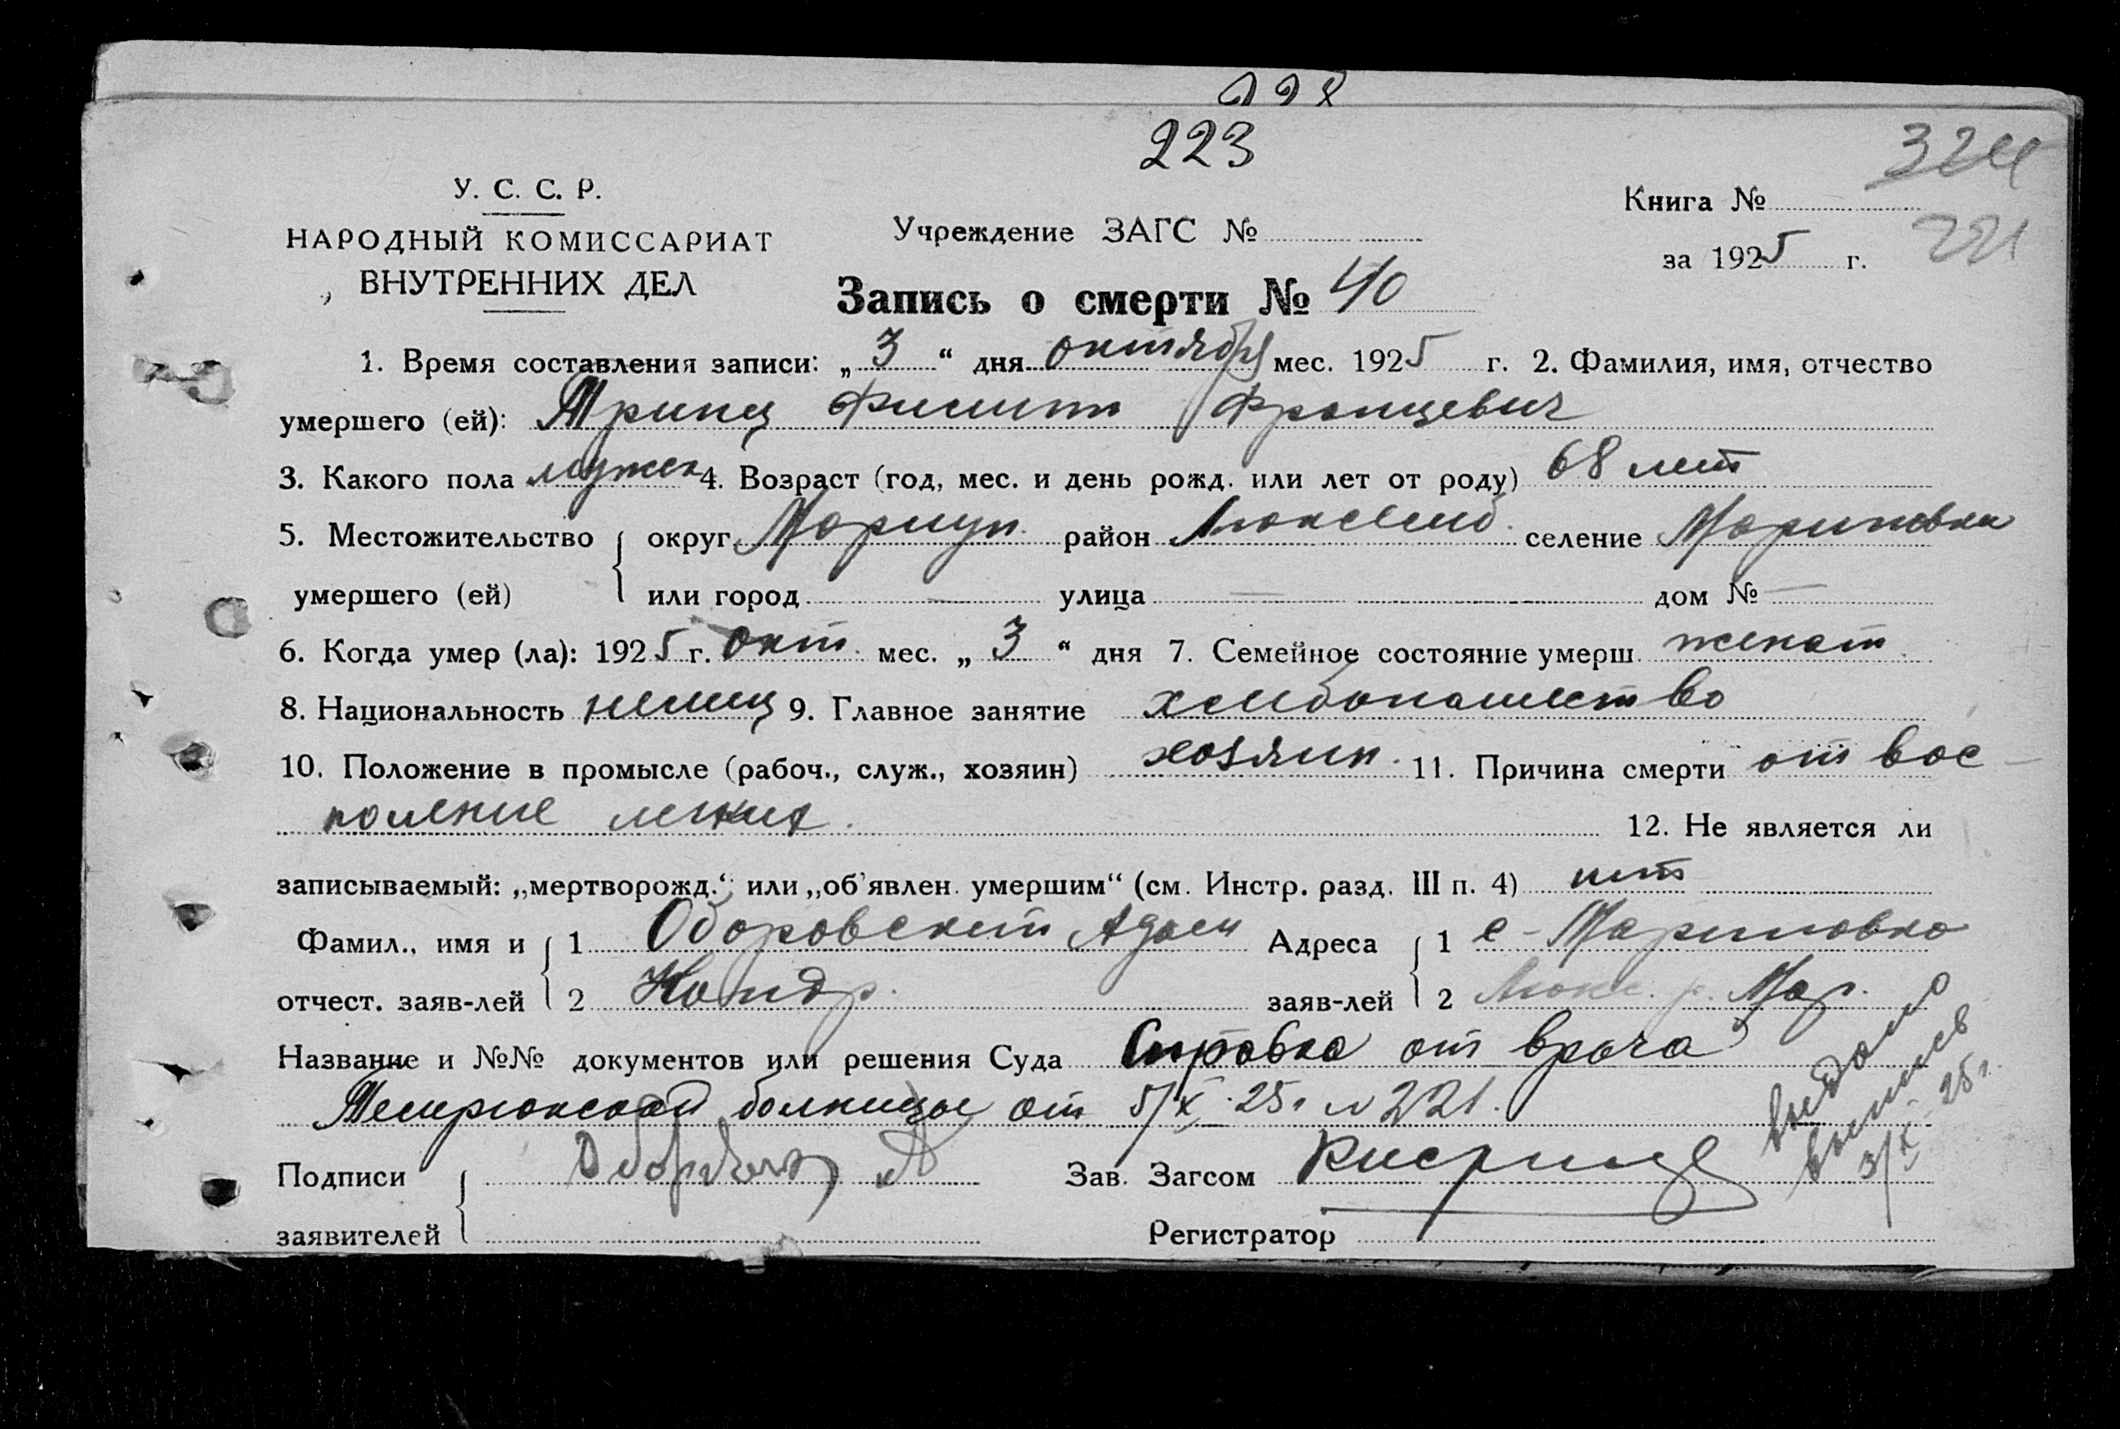 223
324
У. С. С. Р.
НАРОДНЫЙ КОМИССАРИАТ
ВНУТРЕННИХ ДЕЛ
Учреждение ЗАГС №
Книга №
221
за 1925 г.
Запись о смерти № 40
1. Время составления записи: „3“ дня октября мес. 1925 г. 2. Фамилия, имя, отчество
умершего (ей): Тринц Филипп Францевич
3. Какого пола мужск 4. Возраст (год, мес. и день рожд. или лет от роду) 68 лет
5. Местожительство округ Мариуп. район Люксембв. селение Мариновка
умершего (ей) или город — улица — дом № —
6. Когда умер (ла): 1925 г. окт. мес. „3“ дня 7. Семейное состояние умерш. женат.
8. Национальность немец 9. Главное занятие хлебопашество
10. Положение в промысле (рабоч., служ., хозяин) хозяин. 11. Причина смерти от вос-
поление легких. 12. Не является ли
записываемый: „мертворожд.“ или „об'явлен. умершим“ (см. Инстр. разд. III п. 4) нет
Фамил., имя и 1 Оборовский Адам Адреса 1 с-Мариновка
отчест. заяв-лей 2 Кондр. заяв-лей 2 Люкс. р. Мар.
Название и №№ документов или решения Суда Справка от врача
Темрюкской больницы от 5/X-25г № 221.
Подписи Зав. Загсом
заявителей Регистратор
выдана
выпись
3/X 25г.